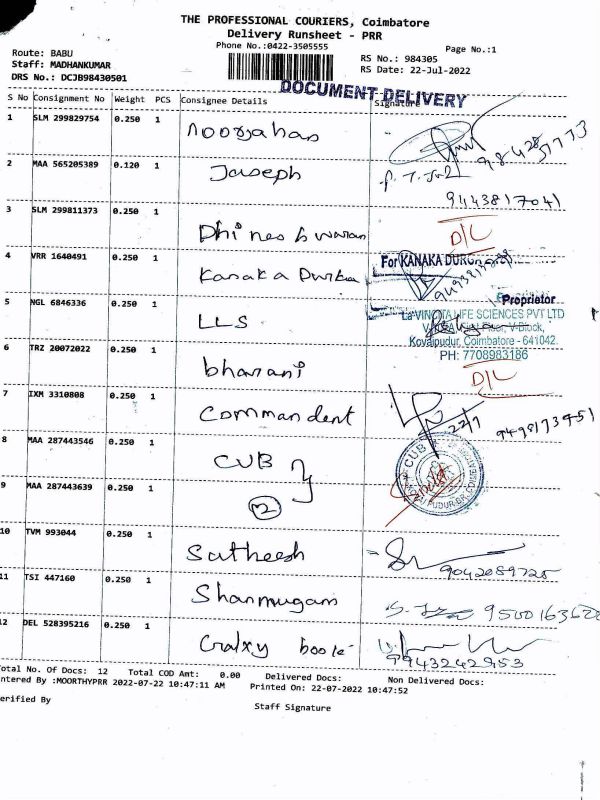 THE PROFESSIONAL COURIERS, Coimbatore
Delivery Runsheet - PRR
Phone No.:0422-3505555
Page No.:1
Route: BABU
Staff: MADHANKUMAR
DRS No.: DCJB98430501
RS No.: 984305
RS Date: 22-Jul-2022
DOCUMENT DELIVERY
S No Consignment No Weight PCS Consignee Details Signature
1 SLM 299829754 0.250 1 Noorjahan
2 MAA 565205389 0.120 1 Joseph
9443817041
3 SLM 299811373 0.250 1 Dhineswaran D/L
4 VRR 1640491 0.250 1 Kanaka Durka For KANAKA
Proprietor
5 NGL 6846336 0.250 1 LLS
LIFE SCIENCES PVT LTD
V-Block,
Kovaipudur, Coimbatore - 641042.
PH: 7708983186
6 TRZ 20072022 0.250 1 bharani D/L
7 IXM 3310808 0.250 1 Commandent 22/7
8 MAA 287443546 0.250 1 CUB
9 MAA 287443639 0.250 1 2
10 TVM 993044 0.250 1 Satheesh 9042089725
11 TSI 447160 0.250 1 Shanmugam
12 DEL 528395216 0.250 1
Total No. Of Docs: 12 Total COD Amt: 0.00 Delivered Docs: Non Delivered Docs:
ntered By :MOORTHYPRR 2022-07-22 10:47:11 AM Printed On: 22-07-2022 10:47:52
erified By
Staff Signature